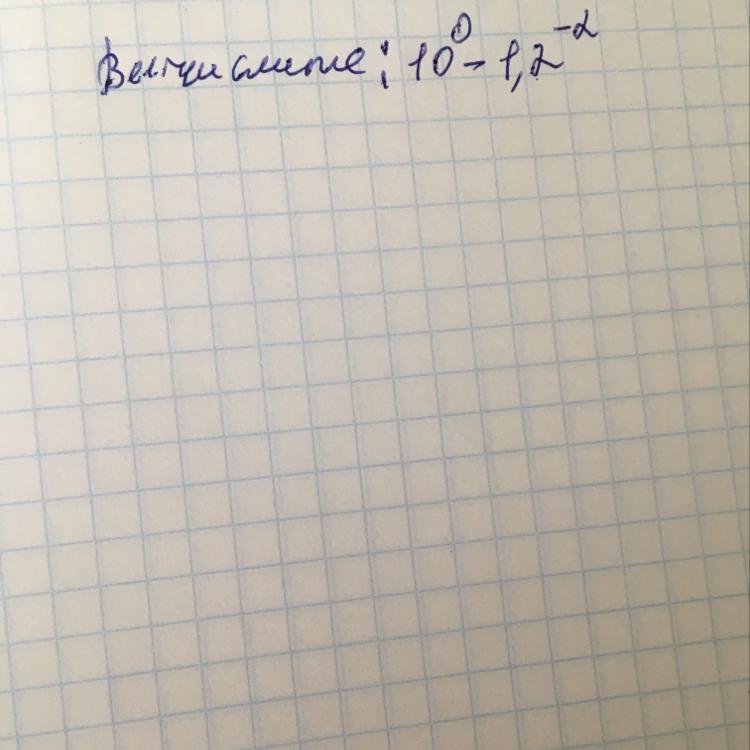 Вычислите: 10⁰ - 1,2⁻²